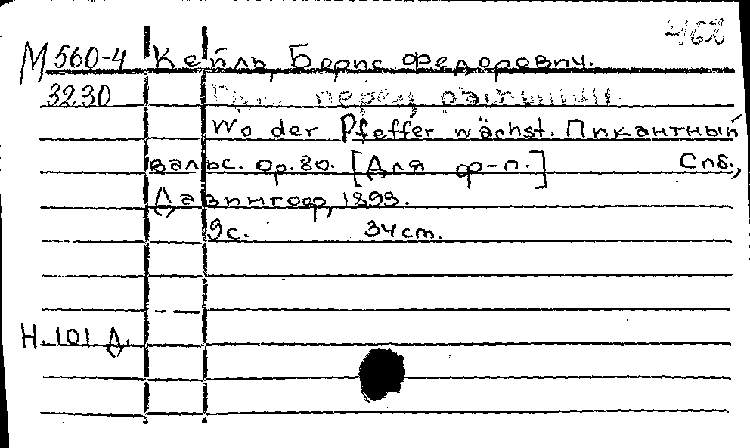 462
М 560-4 Кейль, Борис Федорович.
3230 Где перец
Wo der Pfeffer wächst. Пикантный
вальс. Op. 80. [Для ф-п.] Спб.,
Давингоф, 1899.
9 с. 34 см.
Н. 101 Д.